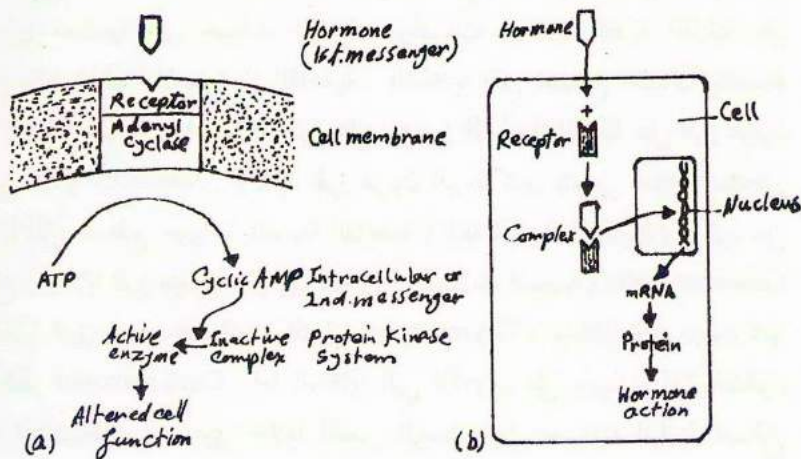 Hormone
(1st. messenger)
Receptor
Adenyl
Cyclase
Cell membrane
ATP
Cyclic AMP
Intracellular or
2nd. messenger
Active
enzyme
Inactive
Complex
Protein Kinase
System
Altered cell
function
(a)
Hormone
+
Cell
Receptor
Complex
Nucleus
mRNA
Protein
Hormone
action
(b)